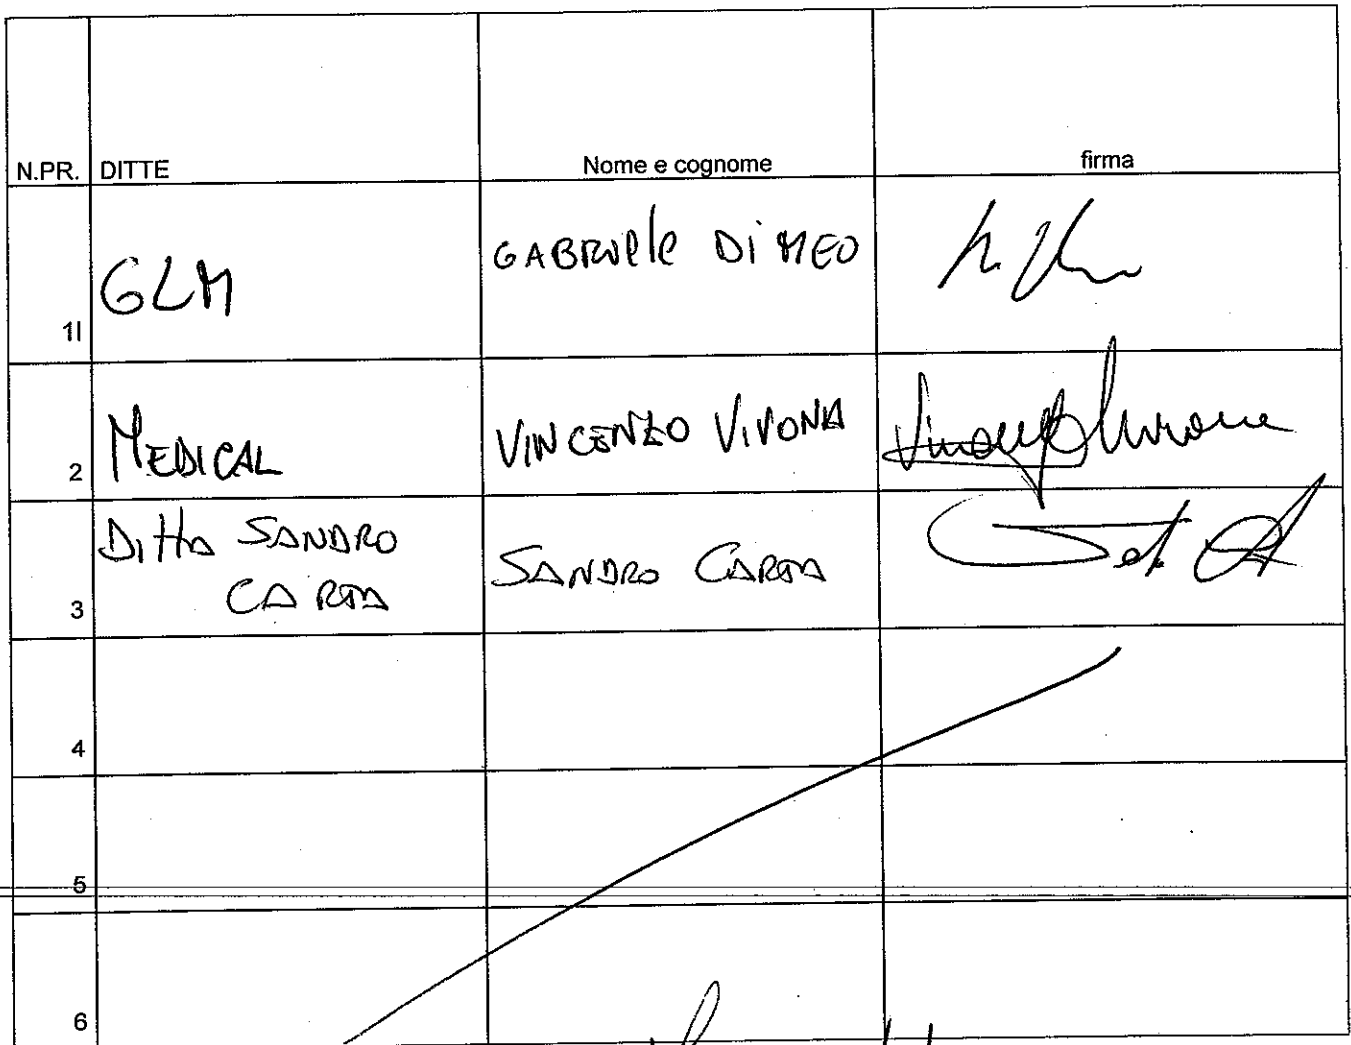 N.PR. DITTE Nome e cognome firma
1I GLM GABRIELE DI MEO
2 MEDICAL VINCENZO VIVONA Vincenzo Vivona
3 Ditta SANDRO
CARTA SANDRO CARTA
4
5
6